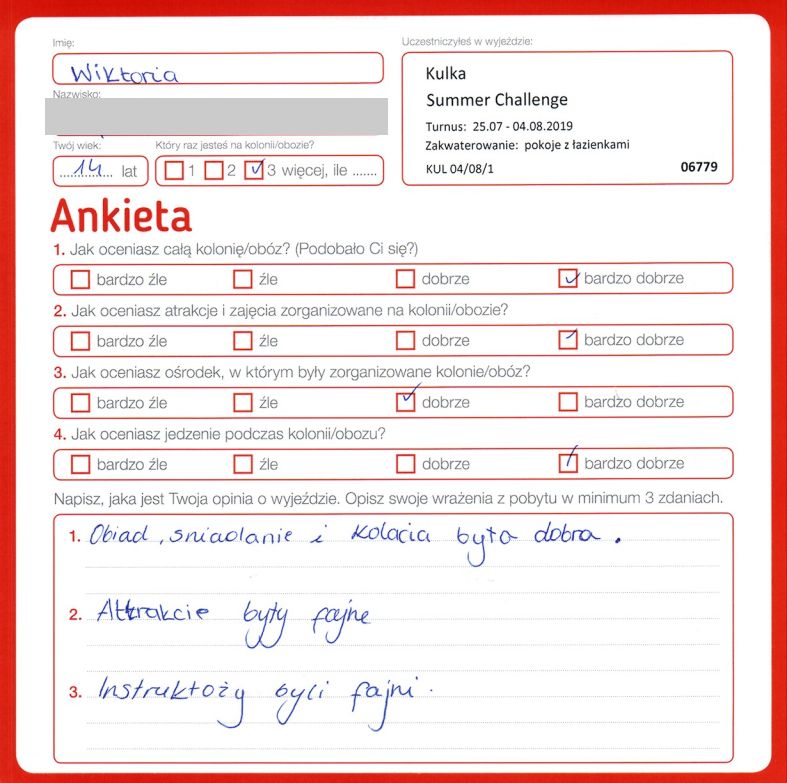 Imię:
Wiktoria
Nazwisko:
Twój wiek:
14 lat
Który raz jesteś na kolonii/obozie?
1 2 3 więcej, ile .......
Uczestniczyłeś w wyjeździe:
Kulka
Summer Challenge
Turnus: 25.07 - 04.08.2019
Zakwaterowanie: pokoje z łazienkami
KUL 04/08/1 06779
Ankieta
1. Jak oceniasz całą kolonię/obóz? (Podobało Ci się?)
bardzo źle źle dobrze bardzo dobrze
2. Jak oceniasz atrakcje i zajęcia zorganizowane na kolonii/obozie?
bardzo źle źle dobrze bardzo dobrze
3. Jak oceniasz ośrodek, w którym były zorganizowane kolonie/obóz?
bardzo źle źle dobrze bardzo dobrze
4. Jak oceniasz jedzenie podczas kolonii/obozu?
bardzo źle źle dobrze bardzo dobrze
Napisz, jaka jest Twoja opinia o wyjeździe. Opisz swoje wrażenia z pobytu w minimum 3 zdaniach.
1. Obiad, sniadanie i kolacia była dobra.
2. Attrakcie były fajne
3. Instruktoży byli fajni.